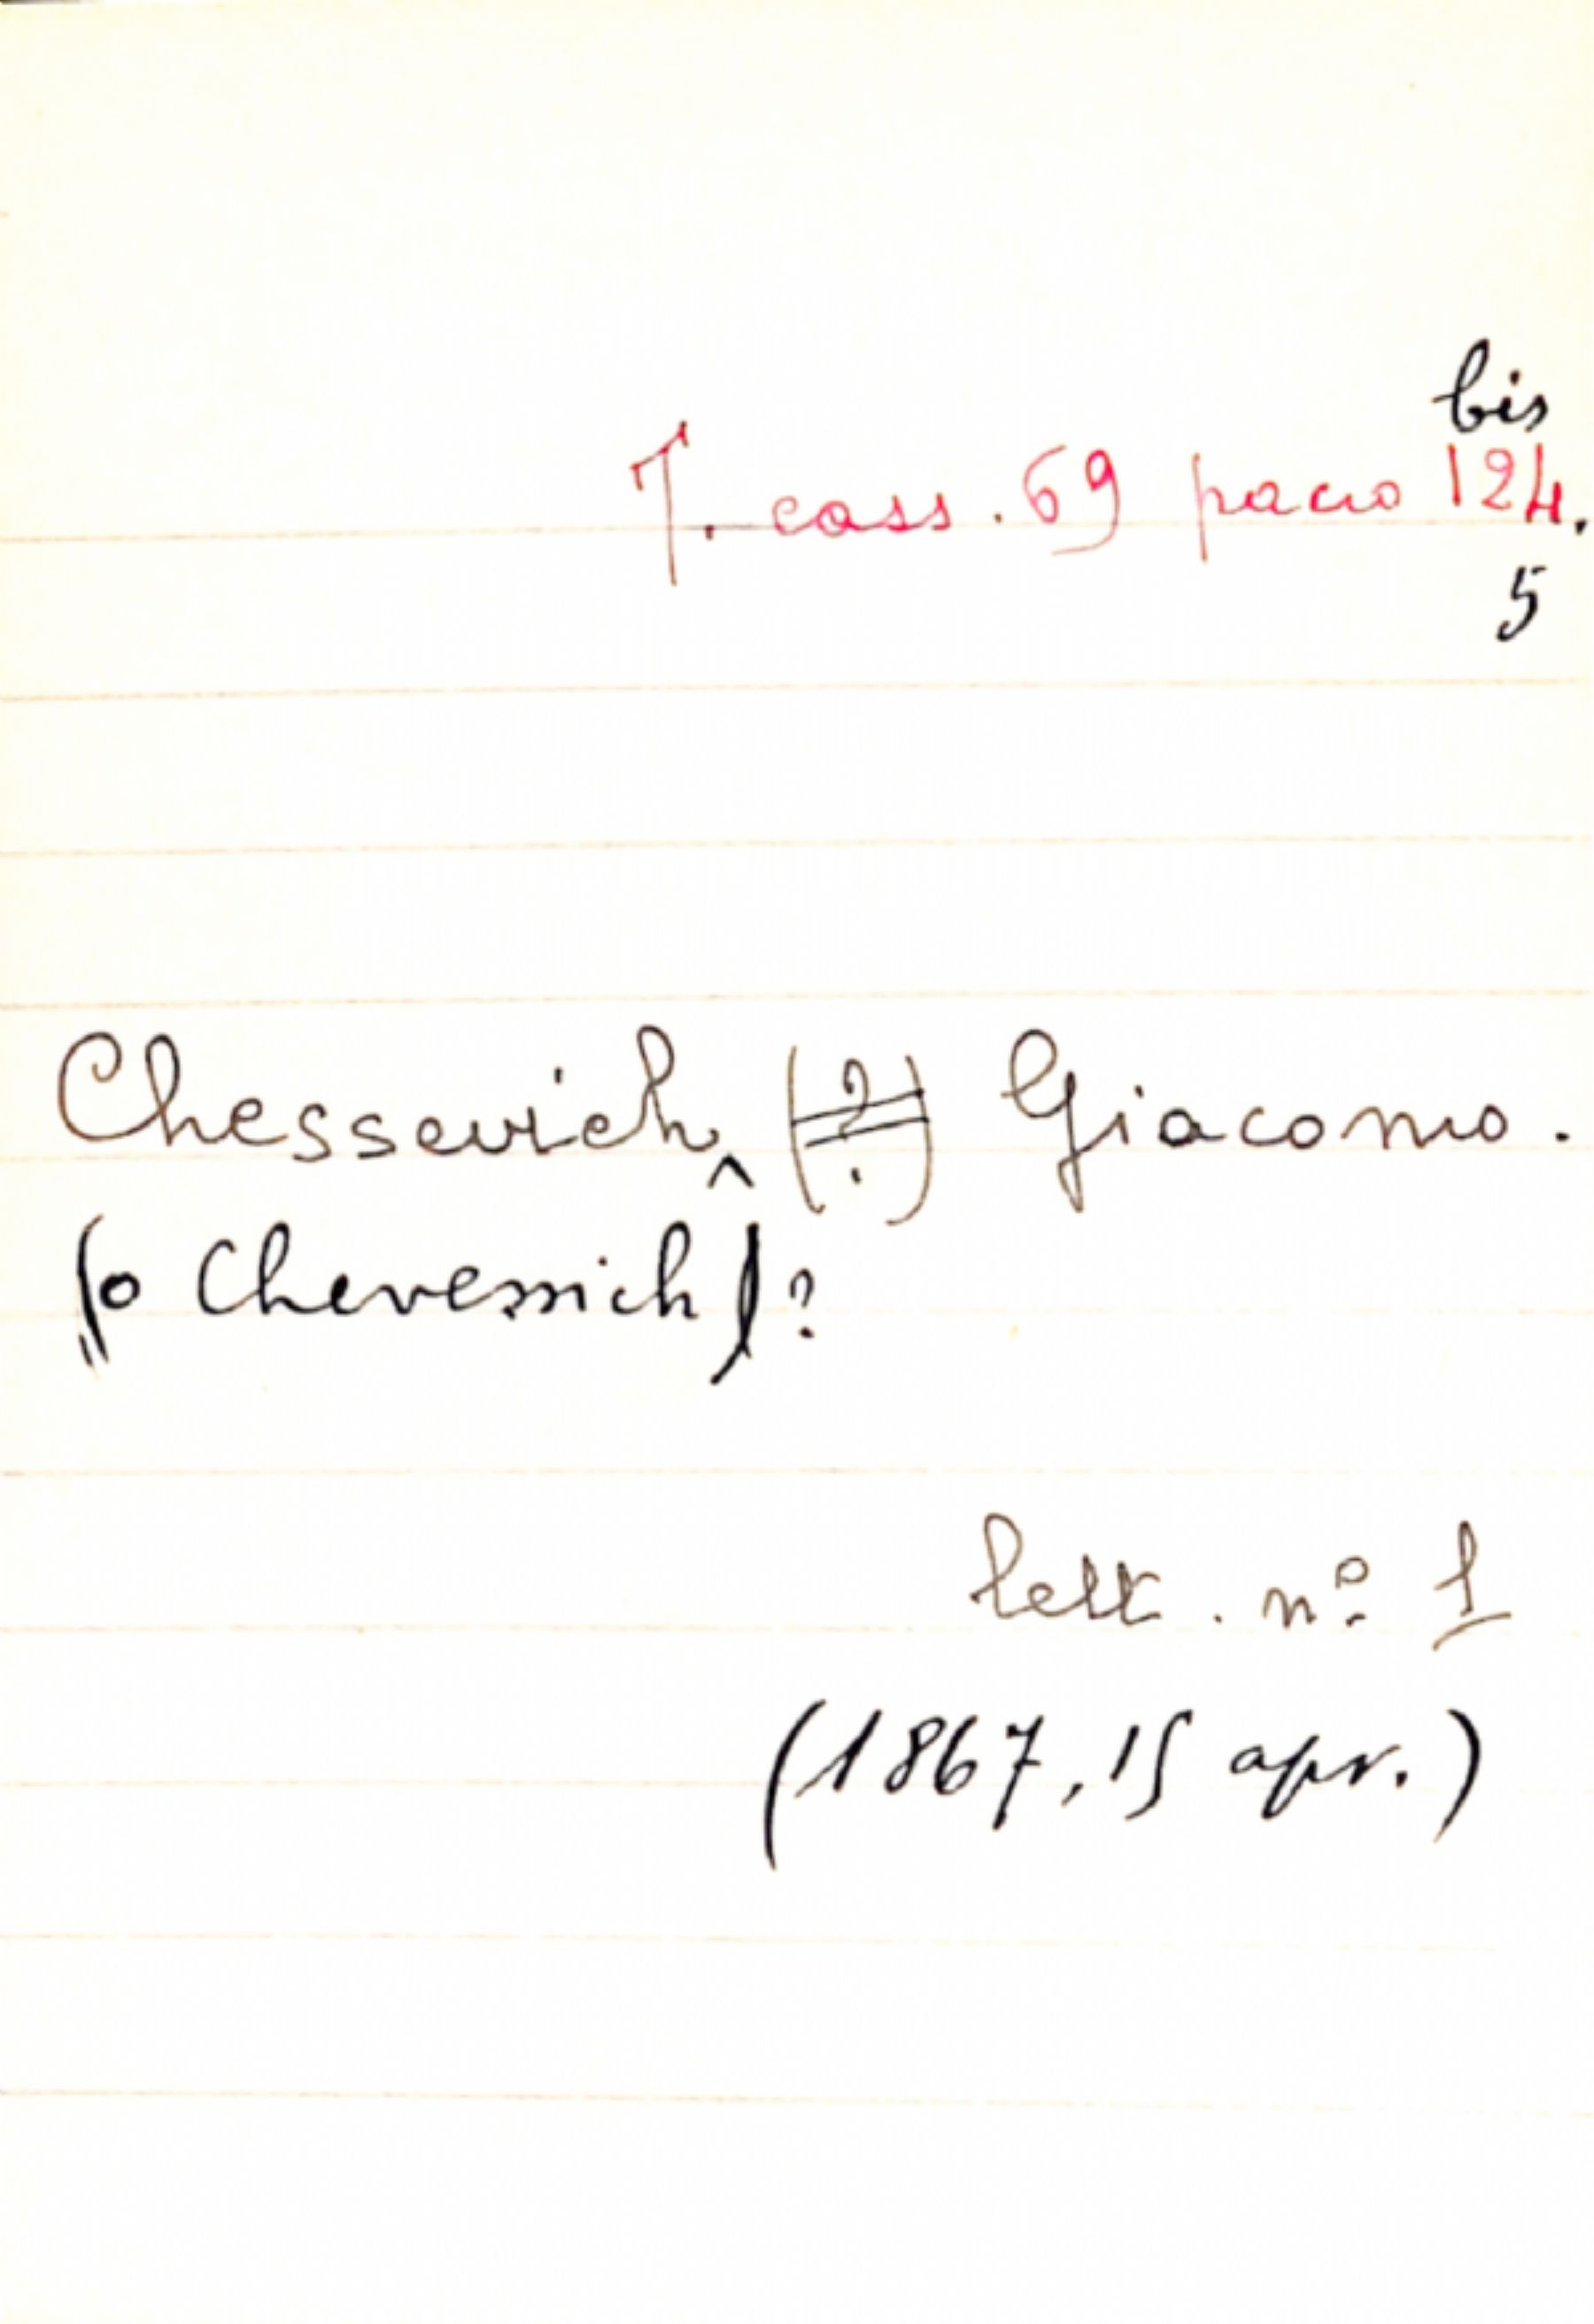 bis
T. cass. 69 pacco 124.
5
Chessevich (?) Giacomo.
(o Chevessich)?
lett. nº 1
(1867, 15 apr.)